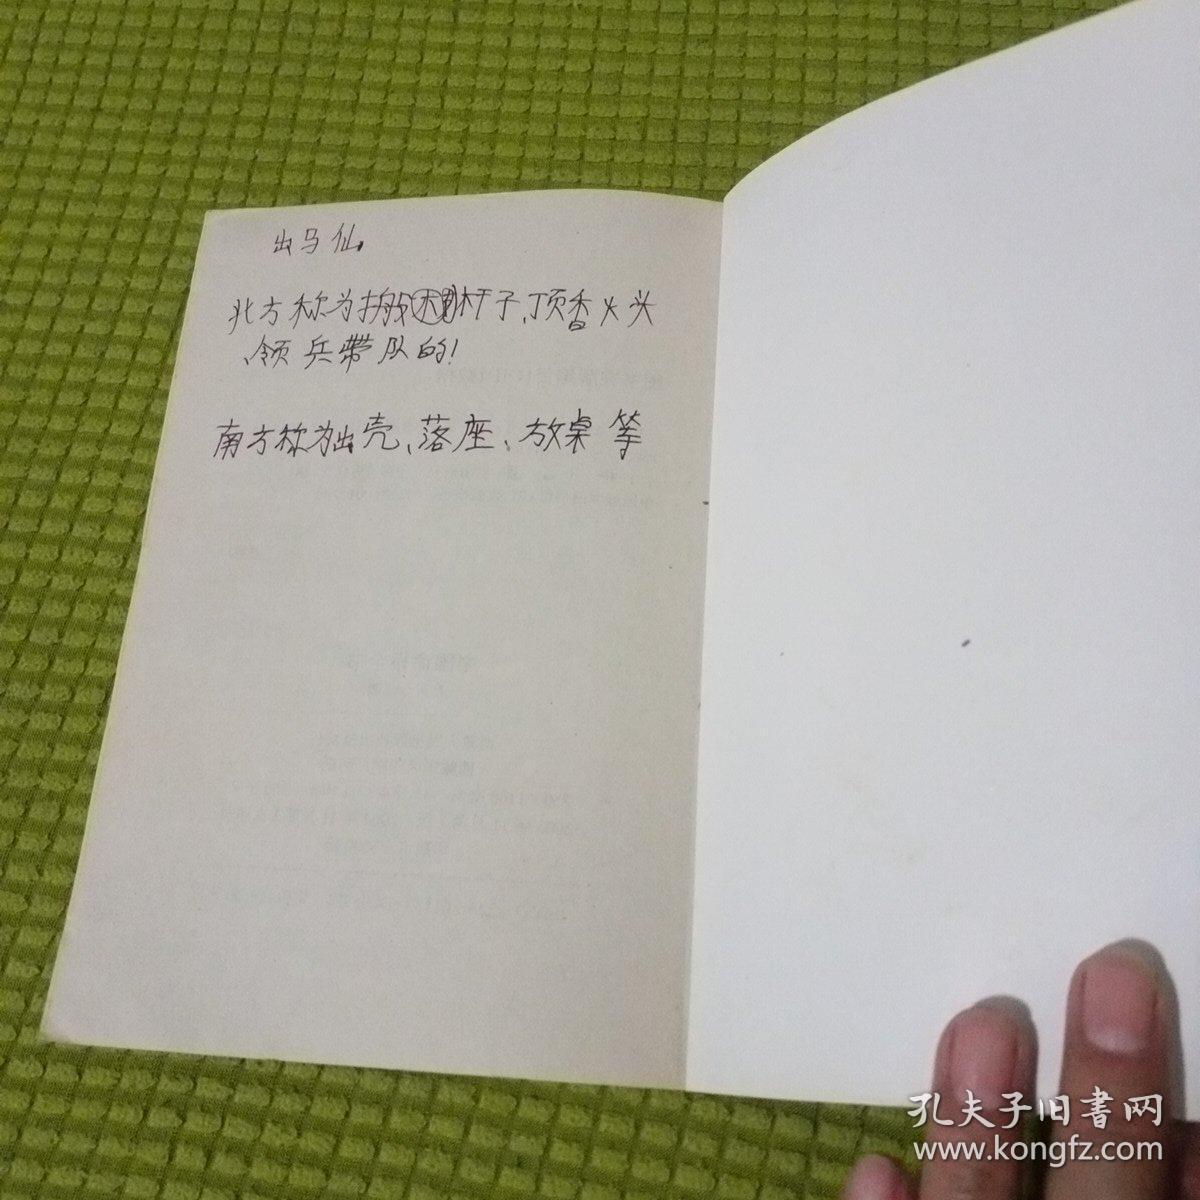 出马仙
北方称为搬杆子、顶香火头
、领兵带队的!
南方称为出壳、落座、放桌等
孔夫子旧書网
www.kongfz.com